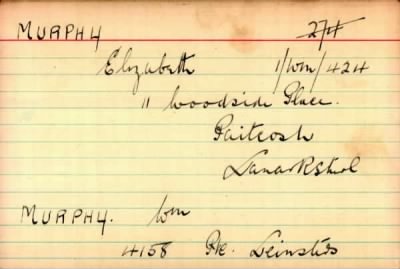 MURPHY 274
Elizabeth 1/Wm/424
11 Woodside Place.
Gartcosh
Lanarkshire
MURPHY. Wm
4158 Pte. Leinsters